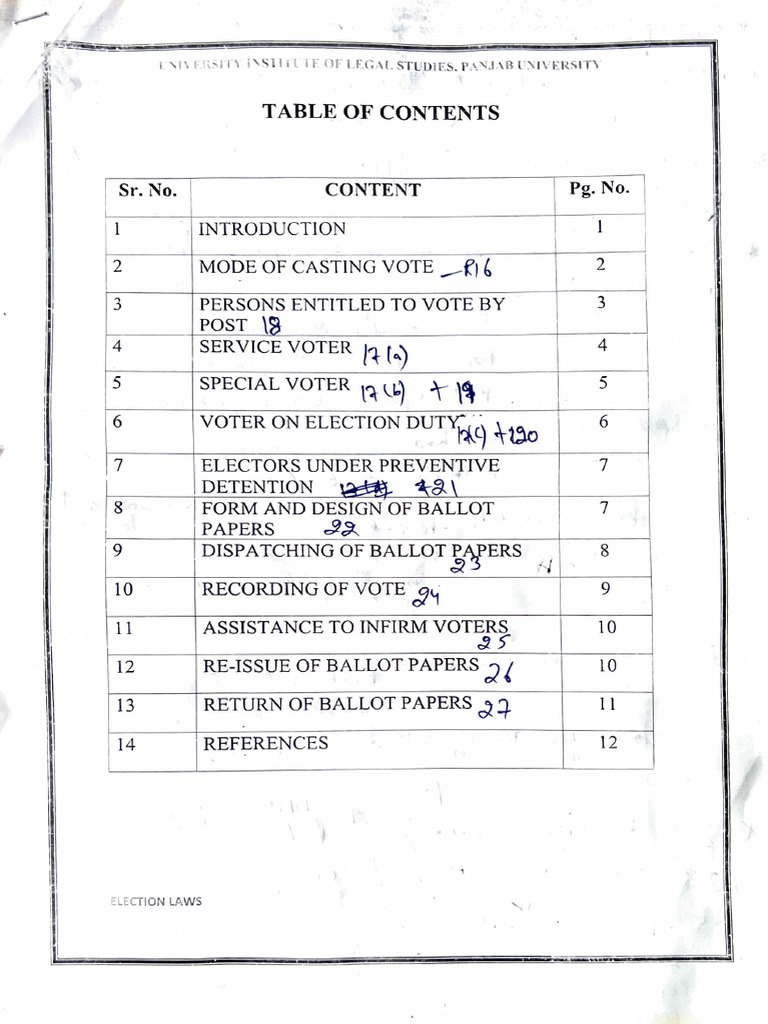 UNIVERSITY INSTITUTE OF LEGAL STUDIES, PANJAB UNIVERSITY
TABLE OF CONTENTS
Sr. No. CONTENT Pg. No.
1 INTRODUCTION 1
2 MODE OF CASTING VOTE – R16 2
3 PERSONS ENTITLED TO VOTE BY 3
POST 18
4 SERVICE VOTER 17(a) 4
5 SPECIAL VOTER 17(b) + 19 5
6 VOTER ON ELECTION DUTY 17(c) + 20 6
7 ELECTORS UNDER PREVENTIVE 7
DETENTION 21
8 FORM AND DESIGN OF BALLOT 7
PAPERS 22
9 DISPATCHING OF BALLOT PAPERS 8
23
10 RECORDING OF VOTE 24 9
11 ASSISTANCE TO INFIRM VOTERS 10
25
12 RE-ISSUE OF BALLOT PAPERS 26 10
13 RETURN OF BALLOT PAPERS 27 11
14 REFERENCES 12
ELECTION LAWS